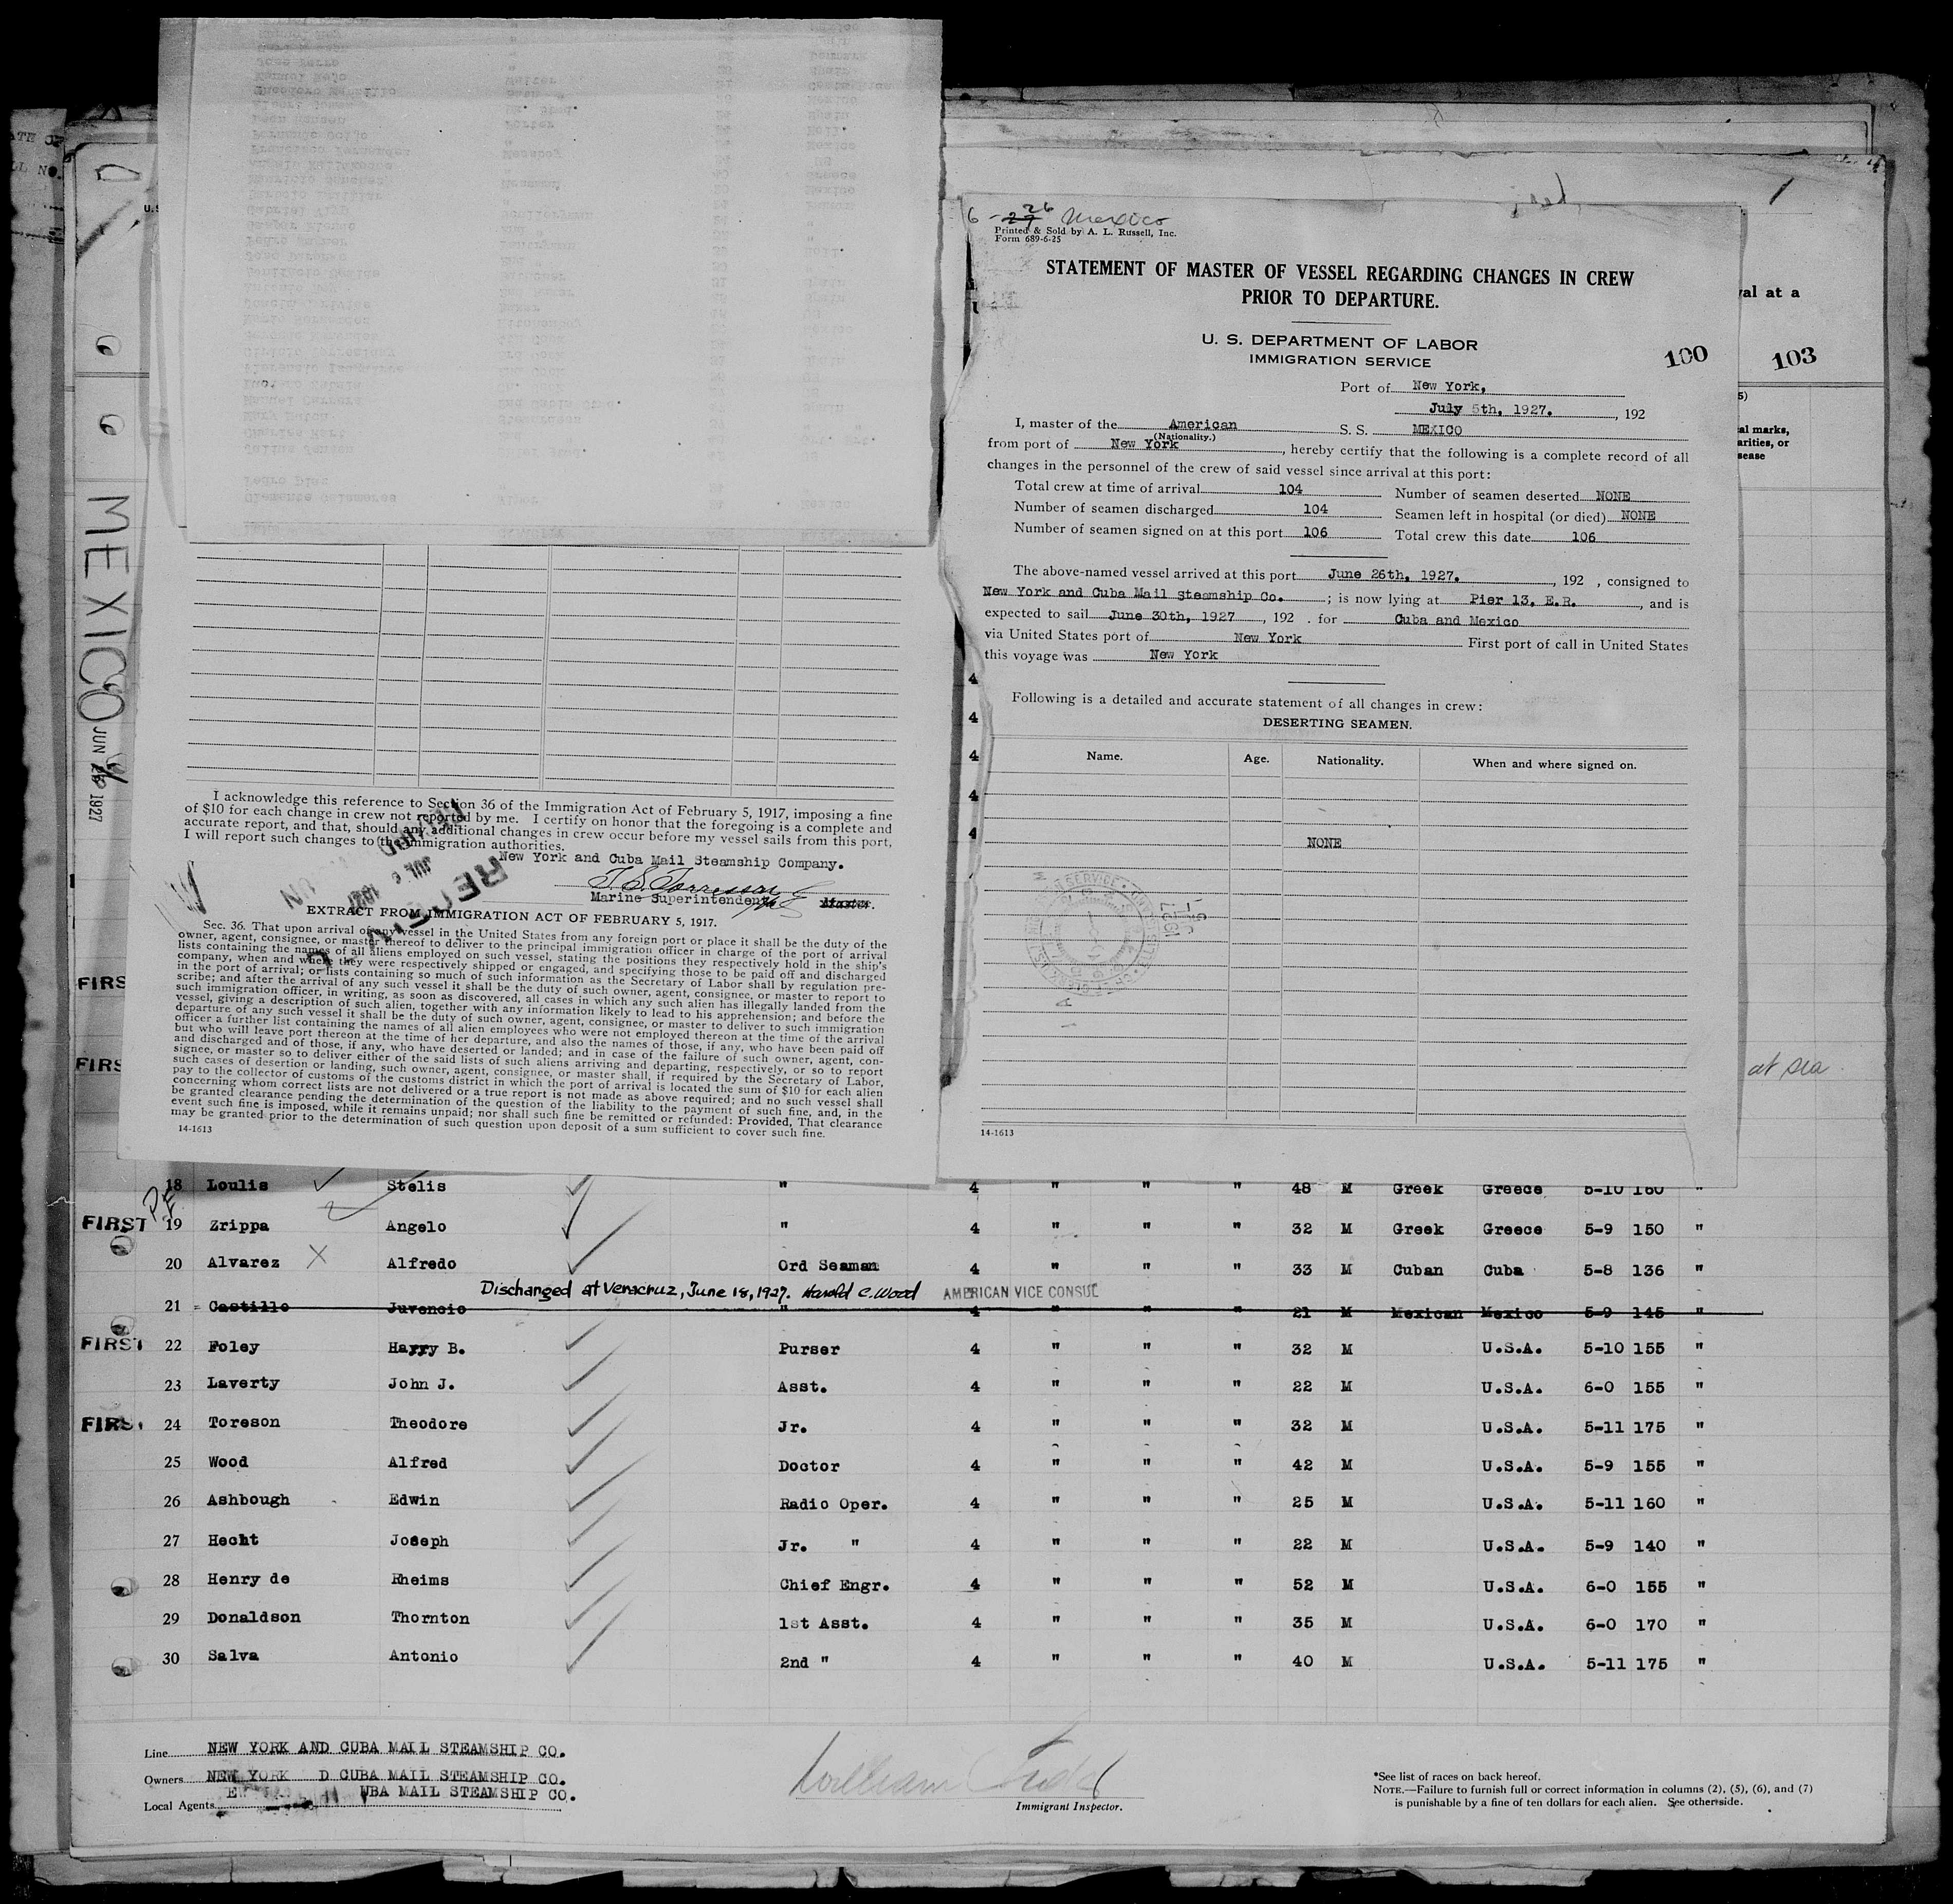 6 - 27 26 Mexico
Printed & Sold by A. L. Russell, Inc.
Form 689-6-25
STATEMENT OF MASTER OF VESSEL REGARDING CHANGES IN CREW
PRIOR TO DEPARTURE.
U. S. DEPARTMENT OF LABOR
IMMIGRATION SERVICE
100
103
1
val at a
Port of New York,
July 5th, 1927. , 192
I, master of the American S. S. MEXICO
(Nationality.)
from port of New York , hereby certify that the following is a complete record of all
changes in the personnel of the crew of said vessel since arrival at this port:
Total crew at time of arrival 104 Number of seamen deserted NONE
Number of seamen discharged 104 Seamen left in hospital (or died) NONE
Number of seamen signed on at this port 106 Total crew this date 106
The above-named vessel arrived at this port June 26th, 1927. , 192 , consigned to
New York and Cuba Mail Steamship Co. ; is now lying at Pier 13, E.R. , and is
expected to sail June 30th, 1927 , 192 . for Cuba and Mexico
via United States port of New York First port of call in United States
this voyage was New York
Following is a detailed and accurate statement of all changes in crew:
DESERTING SEAMEN.
Name. Age. Nationality. When and where signed on.
NONE
14-1613
at sea
MEXICO
JUN 26 1927
I acknowledge this reference to Section 36 of the Immigration Act of February 5, 1917, imposing a fine
of $10 for each change in crew not reported by me. I certify on honor that the foregoing is a complete and
accurate report, and that, should any additional changes in crew occur before my vessel sails from this port,
I will report such changes to the immigration authorities.
New York and Cuba Mail Steamship Company.
Marine Superintendent Master.
EXTRACT FROM IMMIGRATION ACT OF FEBRUARY 5, 1917.
Sec. 36. That upon arrival of any vessel in the United States from any foreign port or place it shall be the duty of the
owner, agent, consignee, or master thereof to deliver to the principal immigration officer in charge of the port of arrival
lists containing the names of all aliens employed on such vessel, stating the positions they respectively hold in the ship's
company, when and where they were respectively shipped or engaged, and specifying those to be paid off and discharged
in the port of arrival; or lists containing so much of such information as the Secretary of Labor shall by regulation pre-
scribe; and after the arrival of any such vessel it shall be the duty of such owner, agent, consignee, or master to report to
such immigration officer, in writing, as soon as discovered, all cases in which any such alien has illegally landed from the
vessel, giving a description of such alien, together with any information likely to lead to his apprehension; and before the
departure of any such vessel it shall be the duty of such owner, agent, consignee, or master to deliver to such immigration
officer a further list containing the names of all alien employees who were not employed thereon at the time of the arrival
but who will leave port thereon at the time of her departure, and also the names of those, if any, who have been paid off
and discharged and of those, if any, who have deserted or landed; and in case of the failure of such owner, agent, con-
signee, or master so to deliver either of the said lists of such aliens arriving and departing, respectively, or so to report
such cases of desertion or landing, such owner, agent, consignee, or master shall, if required by the Secretary of Labor,
pay to the collector of customs of the customs district in which the port of arrival is located the sum of $10 for each alien
concerning whom correct lists are not delivered or a true report is not made as above required; and no such vessel shall
be granted clearance pending the determination of the question of the liability to the payment of such fine, and, in the
event such fine is imposed, while it remains unpaid; nor shall such fine be remitted or refunded: Provided, That clearance
may be granted prior to the determination of such question upon deposit of a sum sufficient to cover such fine.
14-1613
18 Loulis Stelis " 4 " " " 48 M Greek Greece 5-10 160 "
FIRST 19 Zrippa Angelo " 4 " " " 32 M Greek Greece 5-9 150 "
20 Alvarez X Alfredo Ord Seaman 4 " " " 33 M Cuban Cuba 5-8 136 "
Discharged at Veracruz, June 18, 1927. Harold C. Wood AMERICAN VICE CONSUL
21 Castillo Juvencio " 4 " " " 21 M Mexican Mexico 5-9 145 "
FIRST 22 Foley Harry B. Purser 4 " " " 32 M U.S.A. 5-10 155 "
23 Laverty John J. Asst. 4 " " " 22 M U.S.A. 6-0 155 "
FIRST 24 Toreson Theodore Jr. 4 " " " 32 M U.S.A. 5-11 175 "
25 Wood Alfred Doctor 4 " " " 42 M U.S.A. 5-9 155 "
26 Ashbough Edwin Radio Oper. 4 " " " 25 M U.S.A. 5-11 160 "
27 Hecht Joseph Jr. " 4 " " " 22 M U.S.A. 5-9 140 "
28 Henry de Rheims Chief Engr. 4 " " " 52 M U.S.A. 6-0 155 "
29 Donaldson Thornton 1st Asst. 4 " " " 35 M U.S.A. 6-0 170 "
30 Salva Antonio 2nd " 4 " " " 40 M U.S.A. 5-11 175 "
Line NEW YORK AND CUBA MAIL STEAMSHIP CO.
Owners NEW YORK D CUBA MAIL STEAMSHIP CO.
Local Agents UBA MAIL STEAMSHIP CO.
William Todd
Immigrant Inspector.
*See list of races on back hereof.
NOTE.—Failure to furnish full or correct information in columns (2), (5), (6), and (7)
is punishable by a fine of ten dollars for each alien. See other side.